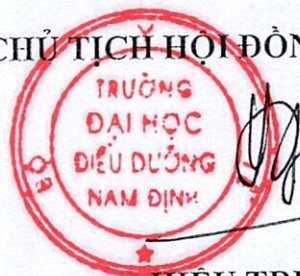 CHỦ TỊCH HỘI ĐỒN
TRƯỜNG
ĐẠI HỌC
ĐIỀU DƯỠNG
NAM ĐỊNH
BỘ